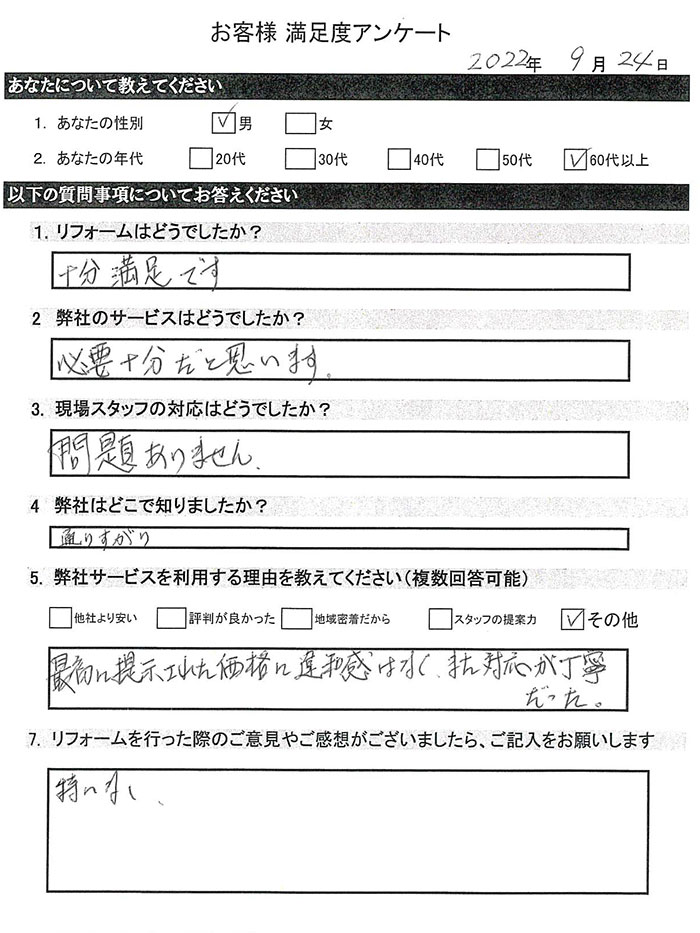 お客様 満足度アンケート
2022年 9月 24日
あなたについて教えてください
1. あなたの性別 ☑男 □女
2. あなたの年代 □20代 □30代 □40代 □50代 ☑60代以上
以下の質問事項についてお答えください
1. リフォームはどうでしたか？
十分満足です
2 弊社のサービスはどうでしたか？
必要十分だと思います。
3. 現場スタッフの対応はどうでしたか？
問題ありません。
4 弊社はどこで知りましたか？
通りすがり
5. 弊社サービスを利用する理由を教えてください（複数回答可能）
□他社より安い □評判が良かった □地域密着だから □スタッフの提案力 ☑その他
最高に提示された価格に違和感はなく、また対応が丁寧
だった。
7. リフォームを行った際のご意見やご感想がございましたら、ご記入をお願いします
特になし、